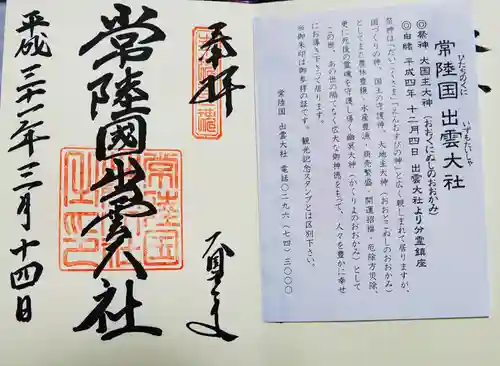 ひたちのくに いずもたいしゃ
常陸国 出雲大社
◎祭神 大国主大神(おおくにぬしのおおかみ)
◎由緒 平成四年 十二月四日 出雲大社より分霊鎮座
祭神は「だいこくさま」「えんむすびの神」と広く親しまれて居りますが、
国づくりの神、国土の守護神、大地主大神(おおとこぬしのおおかみ)
としてまた農林豊穣、水産豊漁、商売繁盛、開運招福、厄除方災除、
更に死後の霊魂を守護し導く幽冥大神(かくりよのおおかみ)として
この世、あの世の隔てなく広大な御神徳をもって、人々を豊かに幸せ
にお導き下さって居ります。
※御朱印は御参拝の証です。観光記念スタンプとは区別下さい。
常陸国 出雲大社 電話〇二九六(七四)三〇〇〇
奉拝
常陸國出雲大社
平成三十一年三月十四日